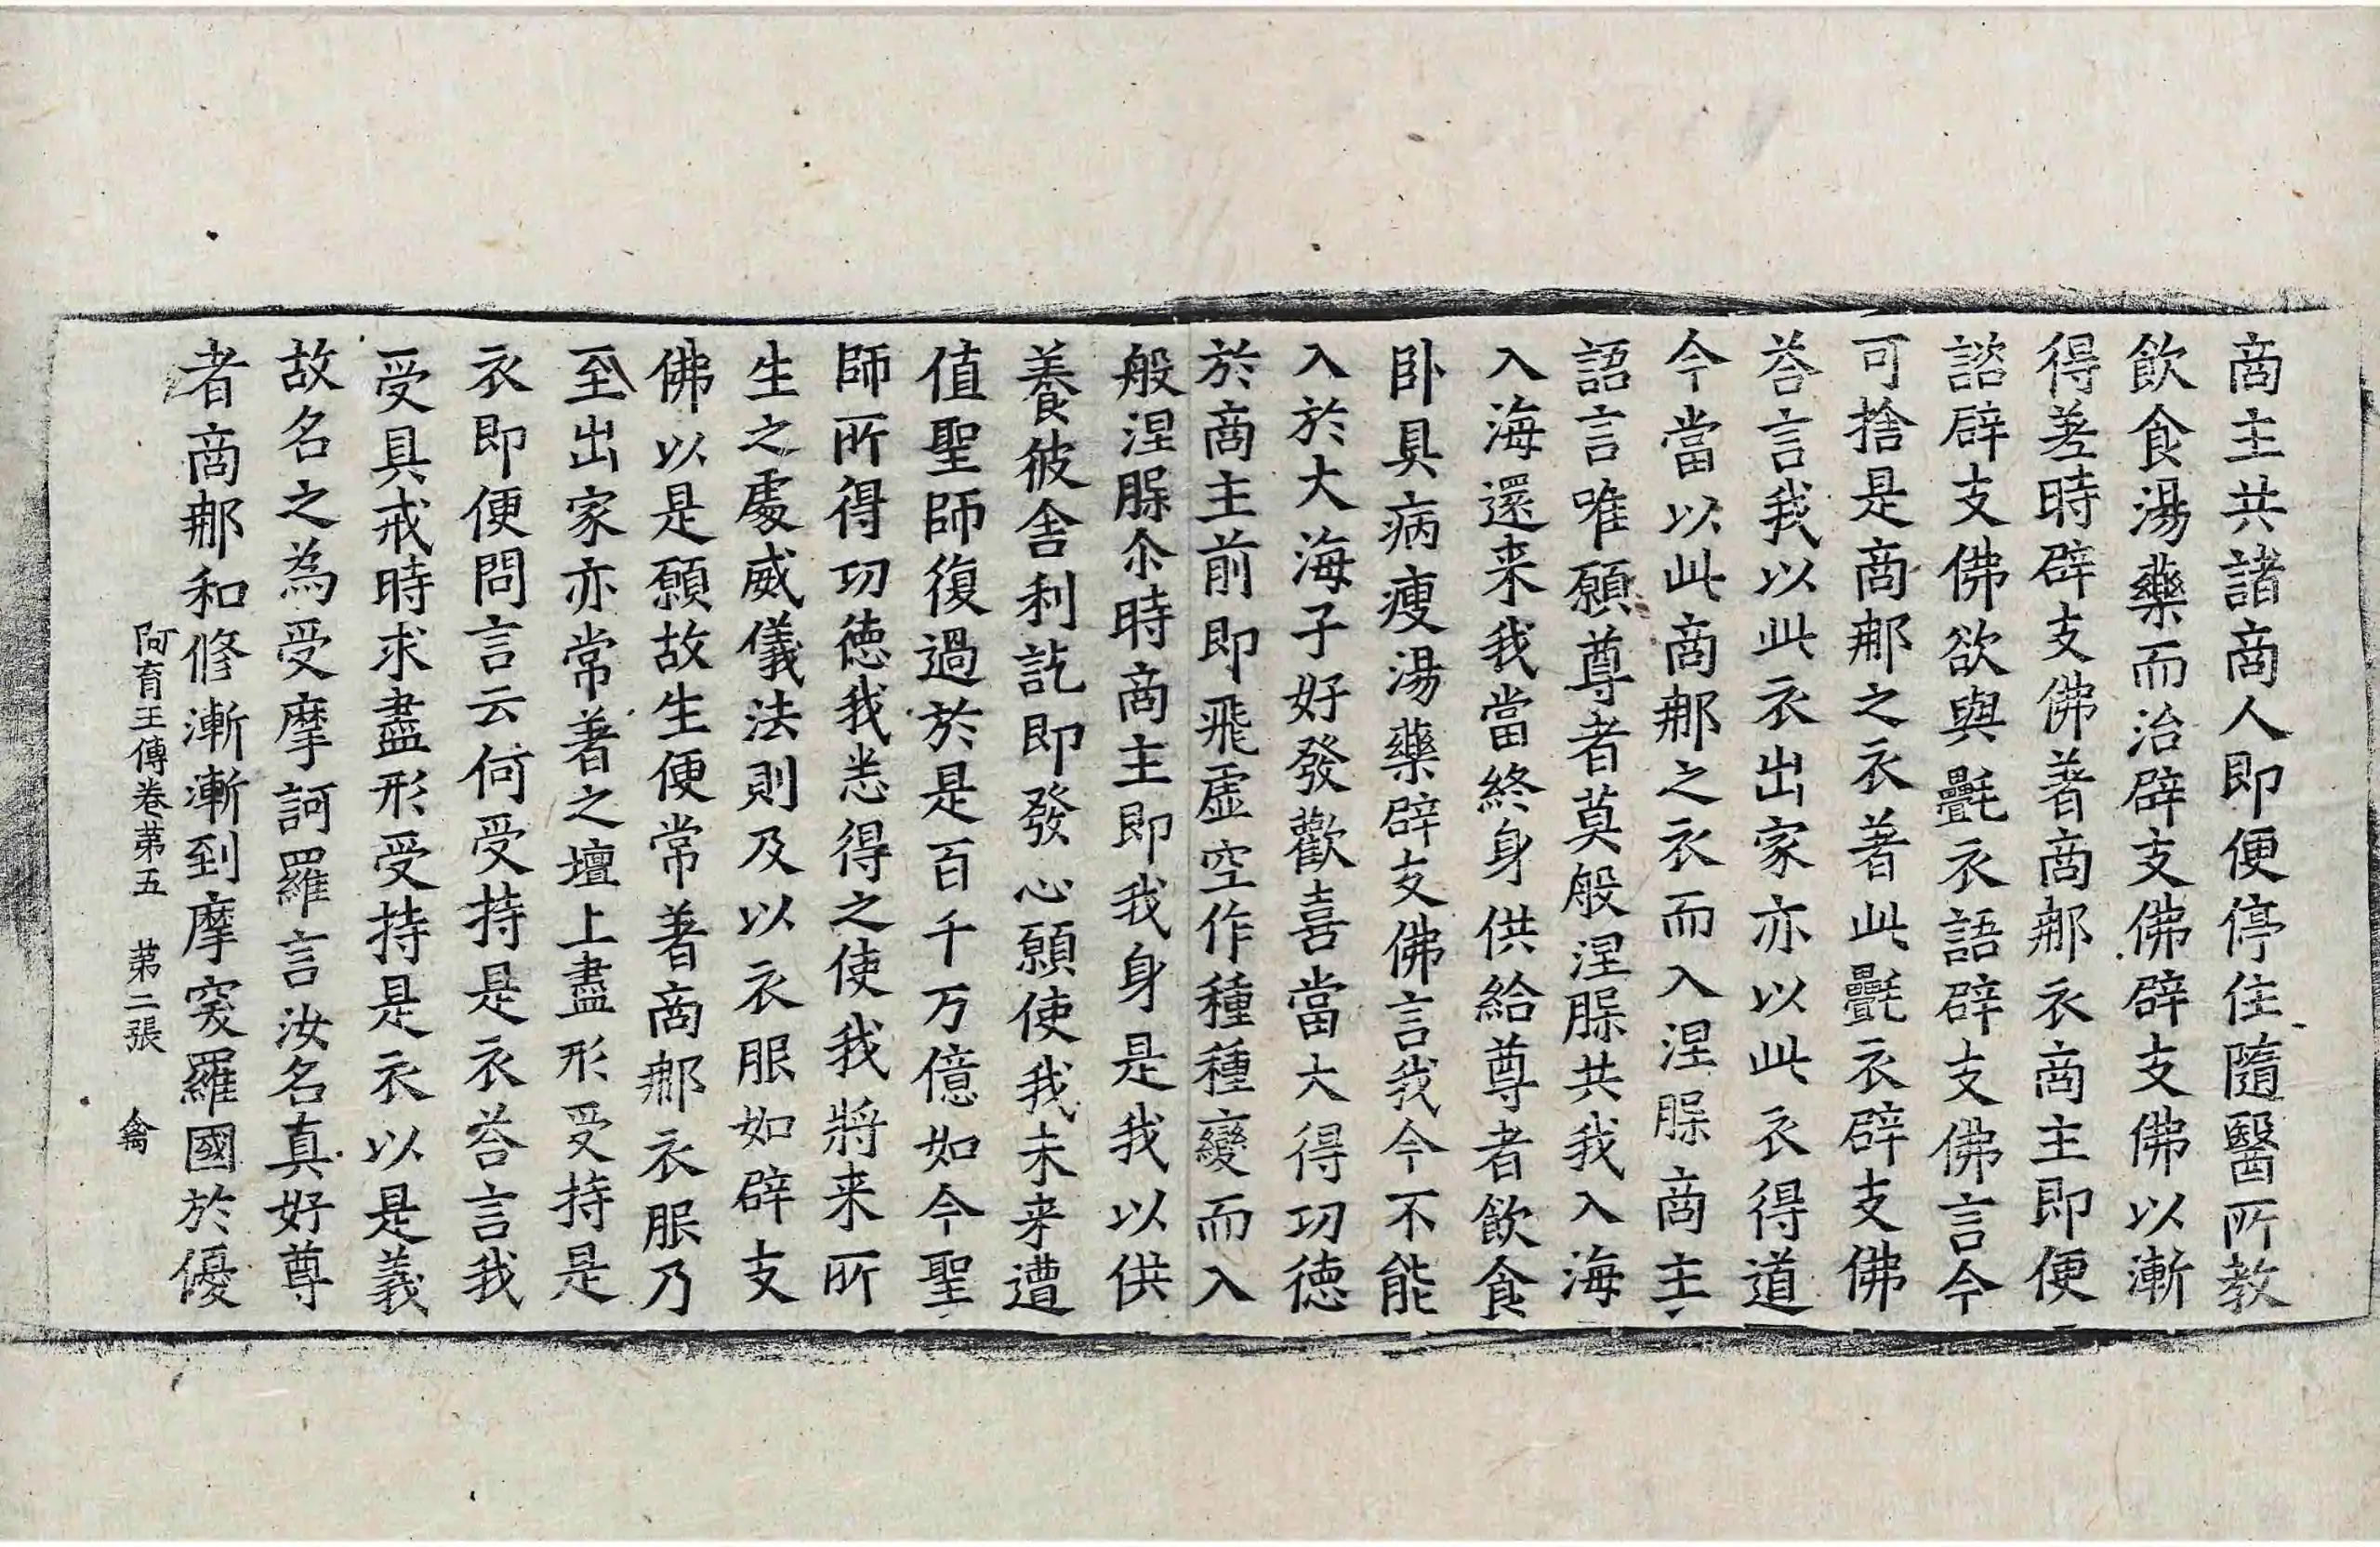 商主共諸商人即便停住隨醫所教
飲食湯藥而治辟支佛辟支佛以漸
得差時辟支佛著商那衣商主即便
諮辟支佛欲與氎衣語辟支佛言今
可捨是商那之衣著此氎衣辟支佛
荅言我以此衣出家亦以此衣得道
今當以此商那之衣而入涅脲商主
語言唯願尊者莫般涅脲共我入海
入海還来我當終身供給尊者飲食
卧具病瘦湯藥辟支佛言我今不能
入於大海子好發歡喜當大得功德
於商主前即飛虛空作種種變而入
般涅脲尒時商主即我身是我以供
養彼舍利訖即發心願使我未来遭
值聖師復過於是百千万億如今聖
師所得功德我悉得之使我將来所
生之處威儀法則及以衣服如辟支
佛以是願故生便常著商那衣服乃
至出家亦常著之壇上盡形受持是
衣即便問言云何受持是衣荅言我
受具戒時求盡形受持是衣以是義
故名之為受摩訶羅言汝名真好尊
者商那和修漸漸到摩突羅國於優
阿育王傳卷第五 第二張 禽